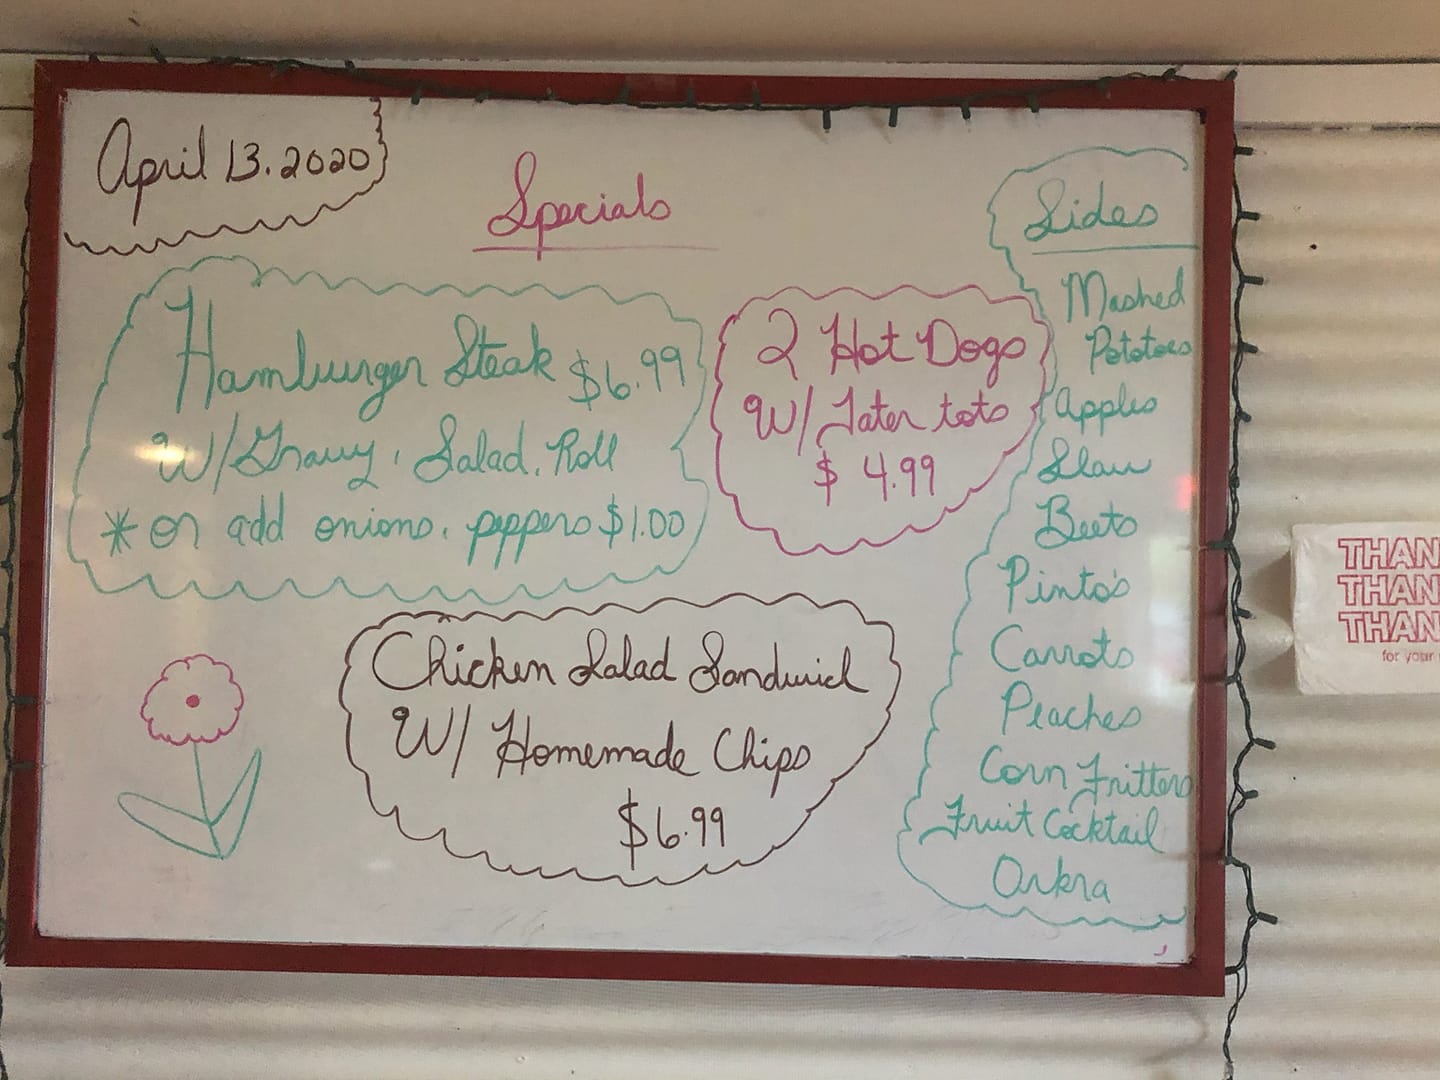 April 13.2020
Specials
Hamburger Steak $6.99
W/Gravy, Salad, Roll
* or add onions, peppers $1.00
2 Hot Dogs
W/ Tater tots
$ 4.99
Chicken Salad Sandwich
W/ Homemade Chips
$6.99
Sides
Mashed
Pototoes
Apples
Slaw
Beets
Pinto's
Carrots
Peaches
Corn Fritters
Fruit Cocktail
Orkra
THAN
THAN
THAN
for your